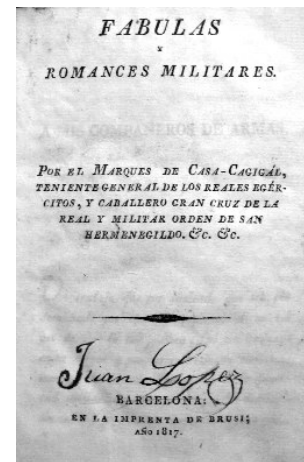 FABULAS
Y
ROMANCES MILITARES.
POR EL MARQUES DE CASA-CAGIGÁL,
TENIENTE GENERAL DE LOS REALES EGÉR-
CITOS, Y CABALLERO GRAN CRUZ DE LA
REAL Y MILITAR ORDEN DE SAN
HERMENEGILDO. &c. &c.
Juan Lopez
BARCELONA:
EN LA IMPRENTA DE BRUSI;
AÑO 1817.